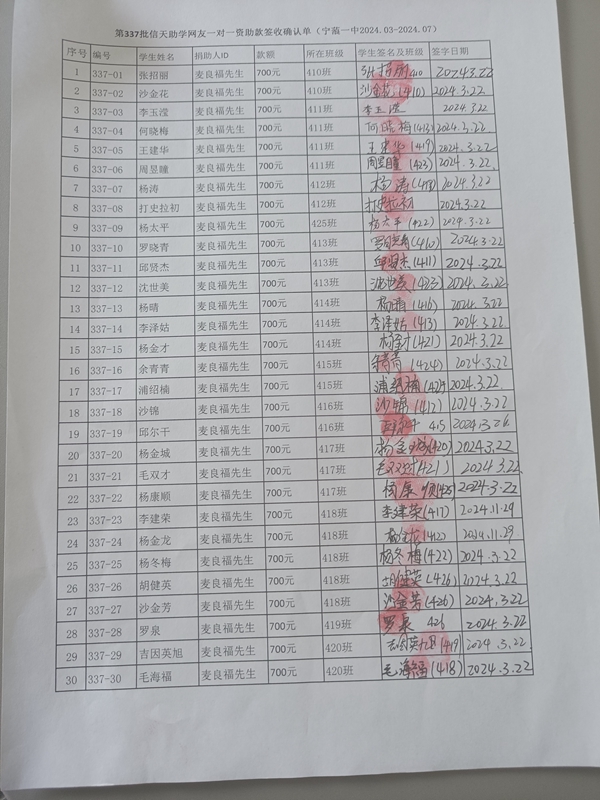 第337批信天助学网友一对一资助款签收确认单（宁蒗一中2024.03-2024.07）
序号 编号 学生姓名 捐助人ID 款额 所在班级 学生签名及班级 签字日期
1 337-01 张招丽 麦良福先生 700元 410班 张招丽410 2024.3.22
2 337-02 沙金花 麦良福先生 700元 410班 沙金花(410) 2024.3.22
3 337-03 李玉滢 麦良福先生 700元 411班 李玉滢 2024.3.22
4 337-04 何晓梅 麦良福先生 700元 411班 何晓梅(413) 2024.3.22
5 337-05 王建华 麦良福先生 700元 411班 王建华(419) 2024.3.22
6 337-06 周昱瞳 麦良福先生 700元 411班 周昱瞳(423) 2024.3.22
7 337-07 杨涛 麦良福先生 700元 412班 杨涛 2024.3.22
8 337-08 打史拉初 麦良福先生 700元 412班 打史拉初 2024.3.22
9 337-09 杨太平 麦良福先生 700元 425班 杨太平(422) 2024.3.22
10 337-10 罗晓青 麦良福先生 700元 413班 罗晓青 2024.3.22
11 337-11 邱贤杰 麦良福先生 700元 413班 邱贤杰(411) 2024.3.22
12 337-12 沈世美 麦良福先生 700元 413班 沈世美(423) 2024.3.22
13 337-13 杨晴 麦良福先生 700元 414班 杨晴(416) 2024.3.22
14 337-14 李泽姑 麦良福先生 700元 414班 李泽姑(413) 2024.3.22
15 337-15 杨金才 麦良福先生 700元 414班 杨金才(421) 2024.3.22
16 337-16 余青青 麦良福先生 700元 415班 余青青(424) 2024.3.22
17 337-17 浦绍楠 麦良福先生 700元 415班 浦绍楠 2024.3.22
18 337-18 沙锦 麦良福先生 700元 416班 沙锦(412) 2024.3.22
19 337-19 邱尔干 麦良福先生 700元 416班 415
20 337-20 杨金城 麦良福先生 700元 417班 杨金城(420) 2024.3.22
21 337-21 毛双才 麦良福先生 700元 417班 毛双才(421) 2024.3.22
22 337-22 杨康顺 麦良福先生 700元 417班 杨康顺 2024.3.22
23 337-23 李建荣 麦良福先生 700元 418班 李建荣(417) 2024.11.29
24 337-24 杨金龙 麦良福先生 700元 418班 杨金龙 2024.11.29
25 337-25 杨冬梅 麦良福先生 700元 418班 杨冬梅(422) 2024.3.22
26 337-26 胡健英 麦良福先生 700元 418班 胡健英(426) 2024.3.22
27 337-27 沙金芳 麦良福先生 700元 418班 沙金芳(426) 2024.3.22
28 337-28 罗泉 麦良福先生 700元 419班 罗泉 426 2024.3.22
29 337-29 吉因英旭 麦良福先生 700元 420班 吉因英旭 419 2024.3.22
30 337-30 毛海福 麦良福先生 700元 420班 毛海福(418) 2024.3.22